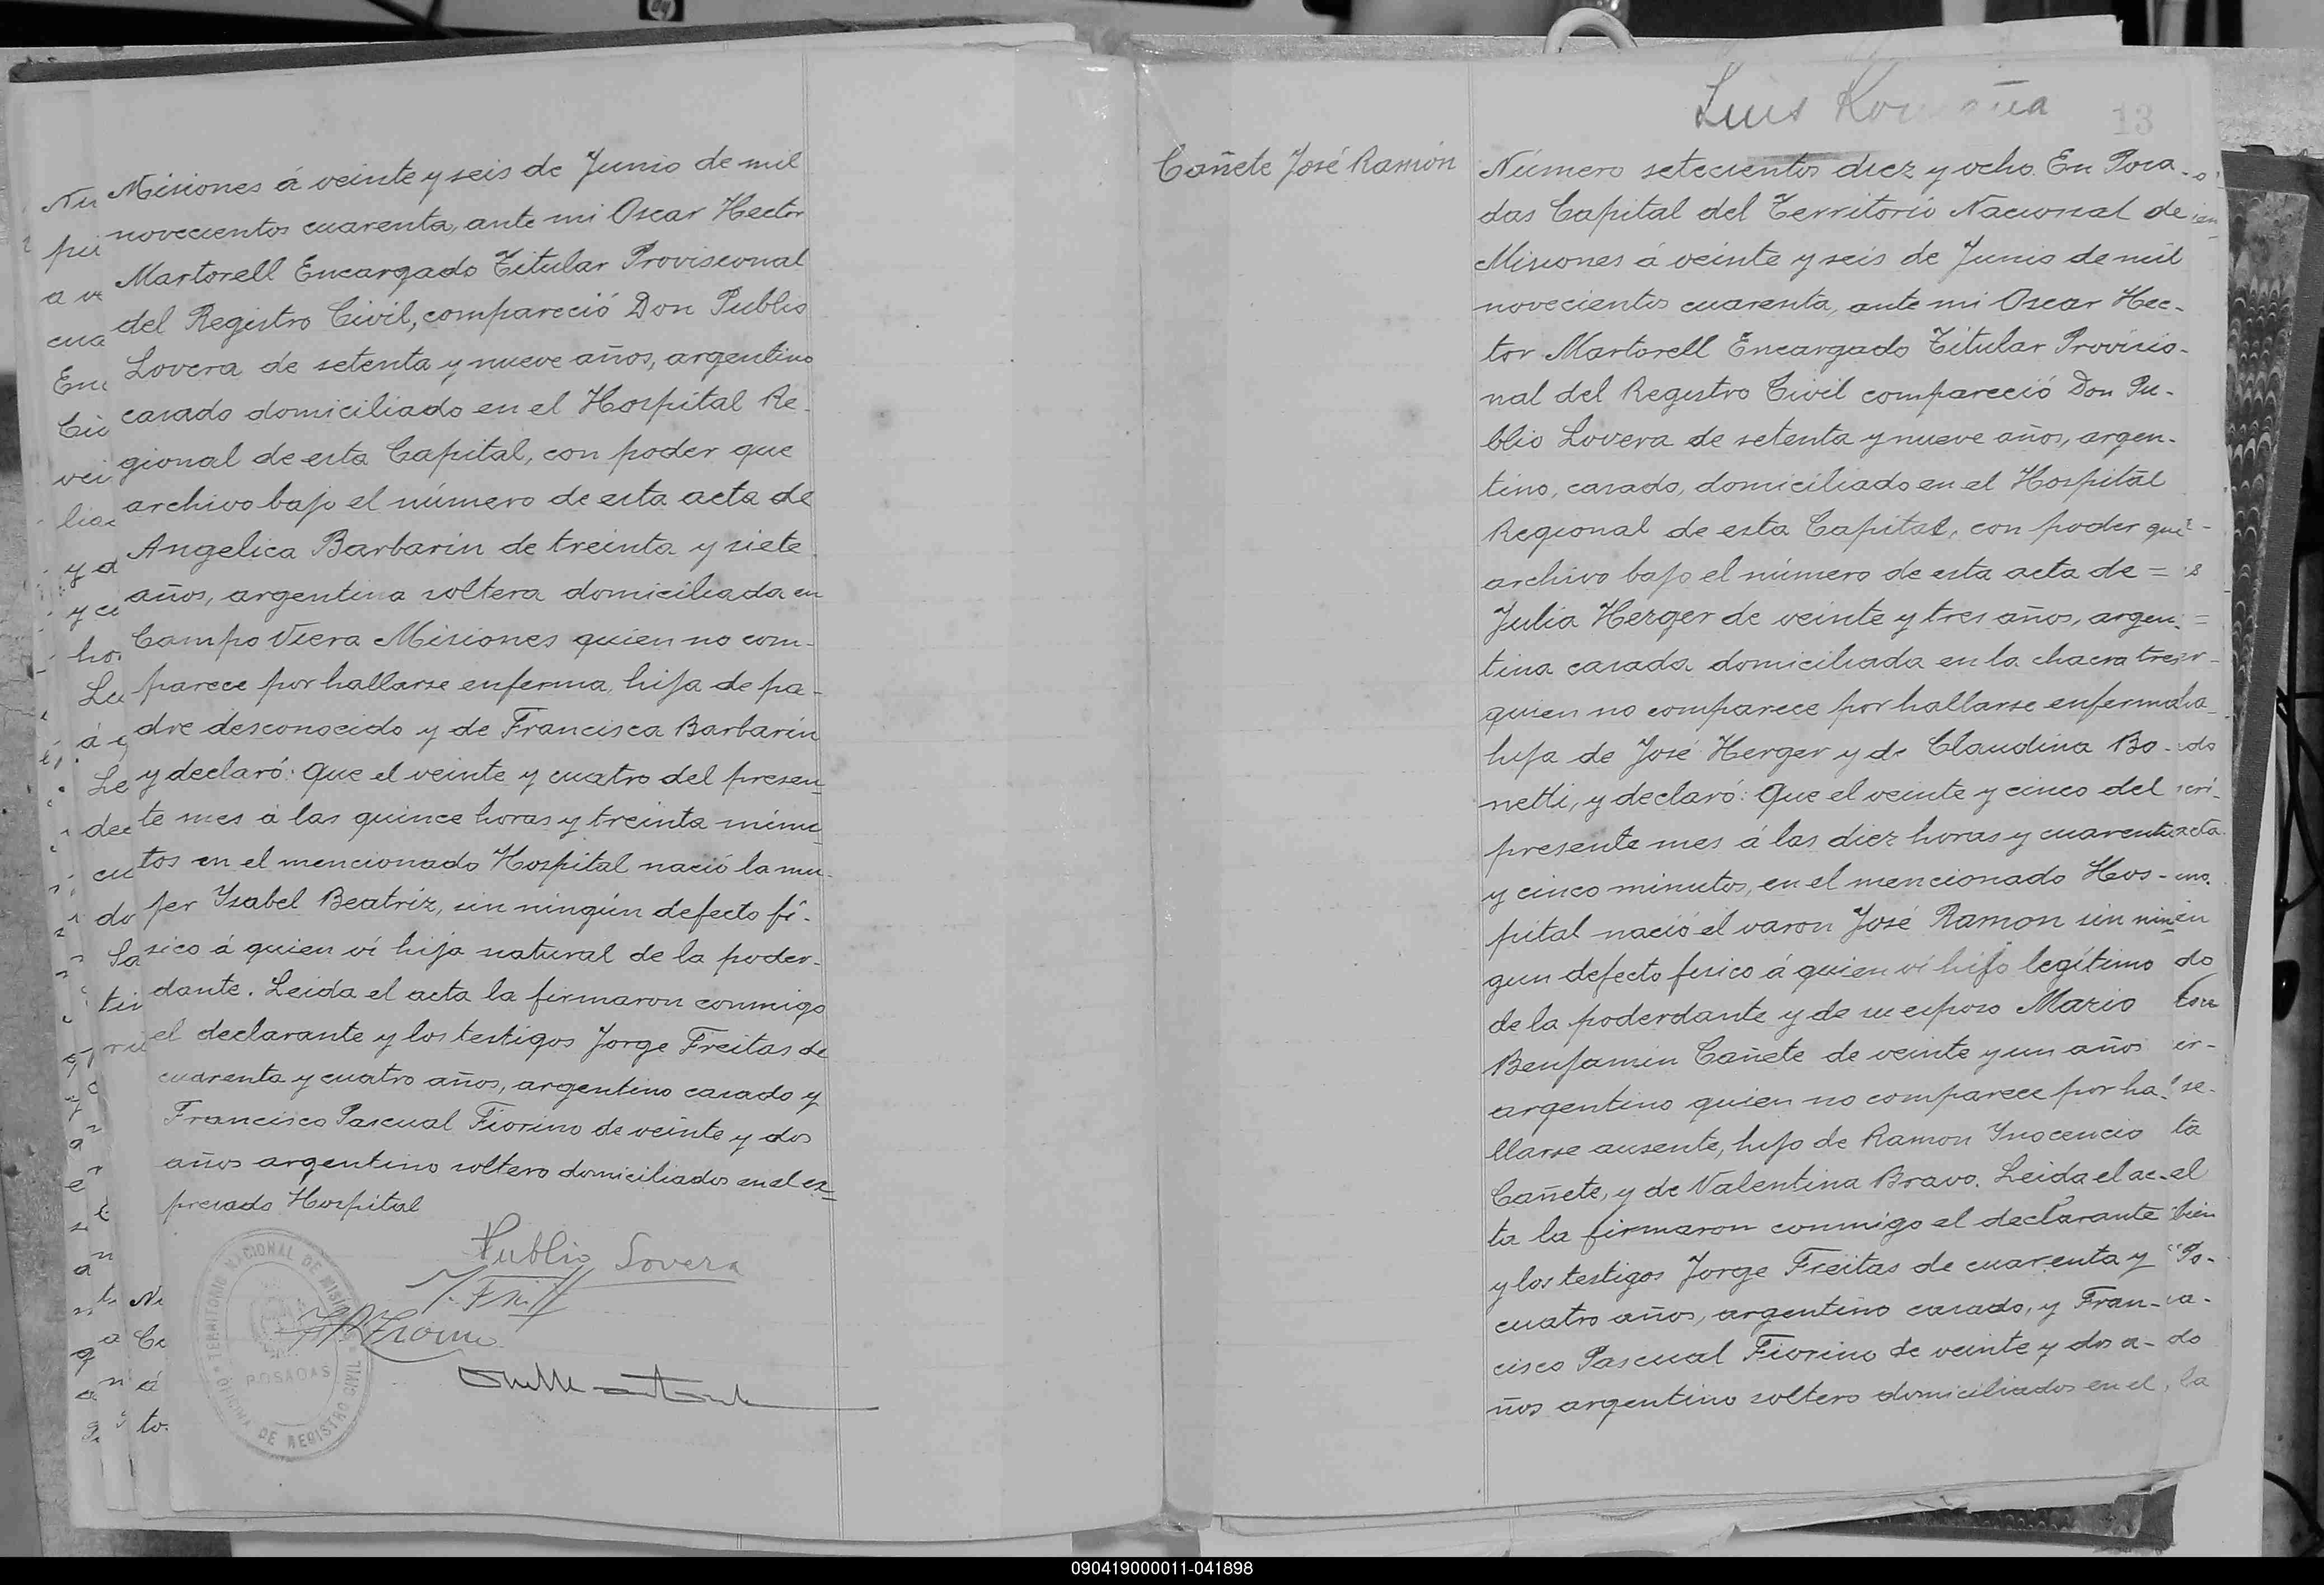 Misiones á veinte y seis de Junio de mil
novecientos cuarenta, ante mi Oscar Hector
Martorell Encargado Titular Provisional
del Registro Civil, compareció Don Publio
Lovera de setenta y nueve años, argentino
casado domiciliado en el Hospital Re-
gional de esta Capital, con poder que
archivo bajo el número de esta acta de
Angelica Barbarin de treinta y siete
años, argentina soltera domiciliada en
Campo Viera Misiones quien no com-
parece por hallarse enferma, hija de pa-
dre desconocido y de Francisca Barbarin
y declaró: Que el veinte y cuatro del presen-
te mes á las quince horas y treinta minu-
tos en el mencionado Hospital nació la mu-
jer Isabel Beatriz, sin ningún defecto fí-
sico á quien ví hija natural de la poder-
dante. Leida el acta la firmaron conmigo
el declarante y los testigos Jorge Freitas de
cuarenta y cuatro años, argentino casado y
Francisco Pascual Fiorino de veinte y dos
años argentino soltero domiciliados en el ex-
presado Hospital
Publio Lovera
TERRITORIO NACIONAL DE MISIONES
POSADAS
OFICINA DE REGISTRO CIVIL
Luis
13
Cañete José Ramón
Número setecientos diez y ocho. En Posa-
das Capital del Territorio Nacional de
Misiones á veinte y seis de Junio de mil
novecientos cuarenta, ante mi Oscar Hec-
tor Martorell Encargado Titular Provisio-
nal del Registro Civil compareció Don Pu-
blio Lovera de setenta y nueve años, argen-
tino, casado, domiciliado en el Hospital
Regional de esta Capital, con poder que
archivo bajo el número de esta acta de =
Julia Herger de veinte y tres años, argen-
tina casada domiciliada en la chacra tres
quien no comparece por hallarse enferma
hija de José Herger y de Claudina Bo-
netti, y declaró: Que el veinte y cinco del
presente mes á las diez horas y cuarenta
y cinco minutos, en el mencionado Hos-
pital nació el varon José Ramon sin nin-
gun defecto fisico á quien ví hijo legítimo
de la poderdante y de su esposo Mario
Benjamin Cañete de veinte y un años
argentino quien no comparece por ha-
llarse ausente, hijo de Ramon Inocencio
Cañete, y de Valentina Bravo. Leida el ac-
ta la firmaron conmigo el declarante
y los testigos Jorge Freitas de cuarenta y
cuatro años, argentino casado, y Fran-
cisco Pascual Fiorino de veinte y dos a-
ños argentino soltero domiciliados en el
090419000011-041898